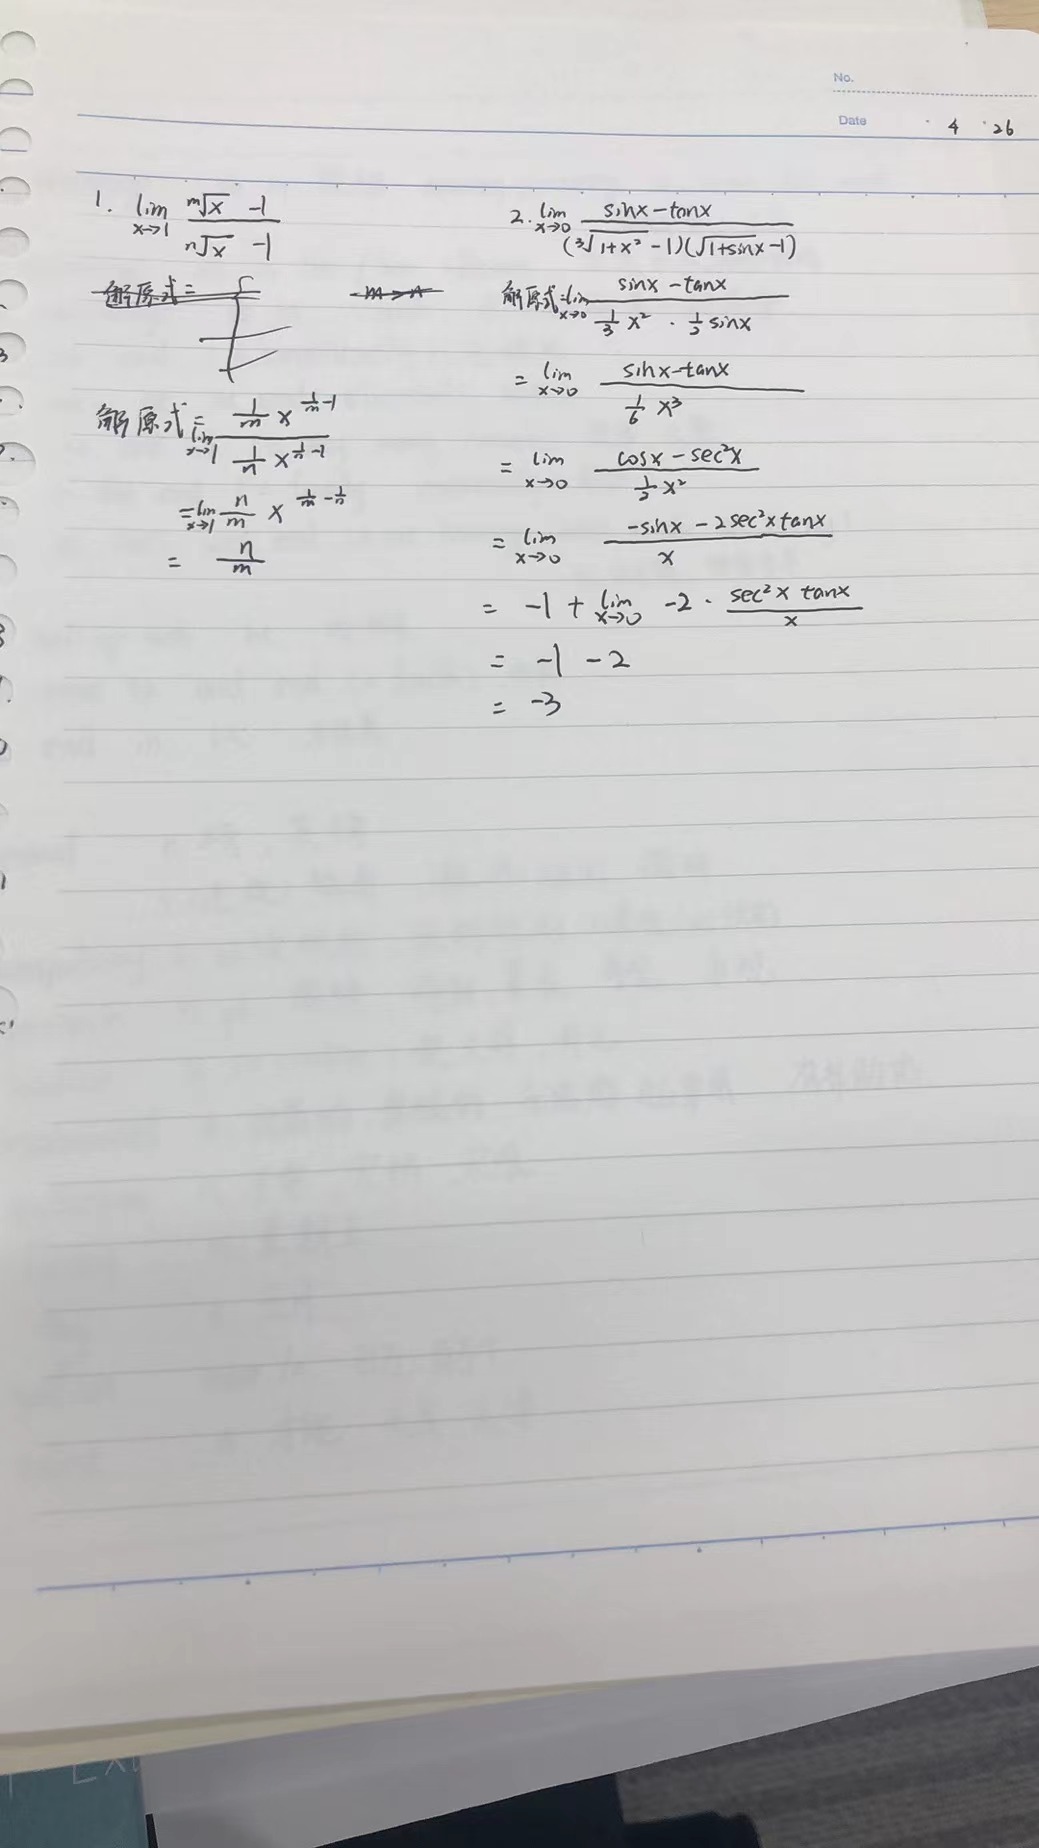 No.
Date 4 26
1. lim x→1 (ᵐ√x - 1)/(ⁿ√x - 1)
解原式=
m > n
解原式= lim x→1 (1/m x^(1/m - 1))/(1/n x^(1/n - 1))
= lim x→1 n/m x^(1/m - 1/n)
= n/m
2. lim x→0 (sinx - tanx)/((³√1+x² - 1)(√1+sinx - 1))
解原式= lim x→0 (sinx - tanx)/(1/3 x² · 1/2 sinx)
= lim x→0 (sinx - tanx)/(1/6 x³)
= lim x→0 (cosx - sec²x)/(1/2 x²)
= lim x→0 (-sinx - 2sec²x tanx)/x
= -1 + lim x→0 -2 · (sec²x tanx)/x
= -1 - 2
= -3